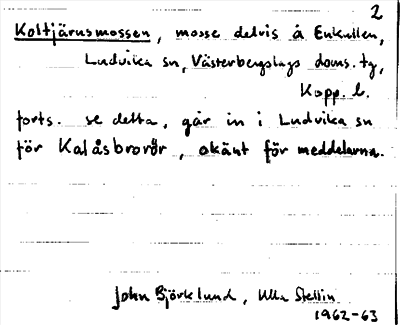 2
Koltjärnsmossen, mosse delvis å Enkullen,
Ludvika sn, Västerbergslags doms. tg,
Kopp. l.
forts. se detta, går in i Ludvika sn
för Kalåsbrorör, okänt för meddelarna.
John Björklund, Ulla Stellin
1962-63